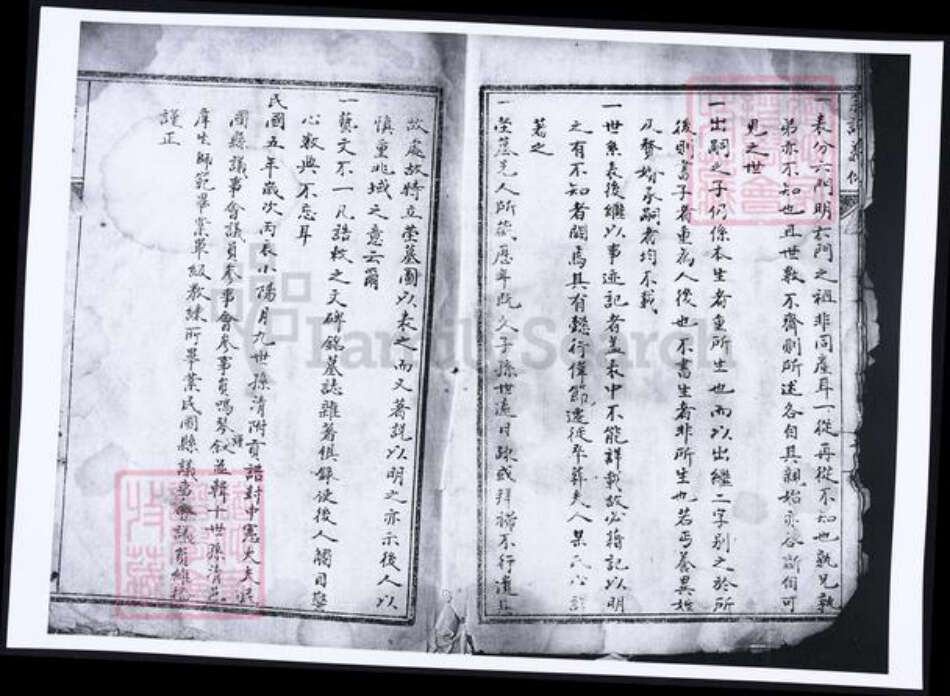 一表分六門明六門之祖非同產耳一從再從不知也孰兄孰
弟亦不知也且世數不齊則所述各自其親始亦各斷自可
見之世
一出嗣之子仍係本生者重所生也而以出繼二字別之於所
後則書子者重為人後也不書生者非所生也若丐養異姓
及贅婿承嗣者均不載
一世系表後繼以事迹記者蓋表中不能詳載故必籍記以明
之有不知者闕焉其有懿行偉節遷徙卒葬夫人某氏必詳
著之
一塋墓先人所藏歷年既久子孫世遠日疎或拜掃不行遺其
故處故特立塋墓圖以表之而又著說以明之亦示後人以
慎重兆域之意云爾
一藝文不一凡誥敕之文碑銘墓誌雜著俱錄使後人觸目警
心數典不忘耳
民國五年歲次丙辰小陽月九世孫清附貢誥封中憲大夫民
國縣議事會議員參事會參事員鳴琴敘並輯十世孫清邑
庠生師範畢業單級教練所畢業民國縣議事會議員維
謹正
FamilySearch